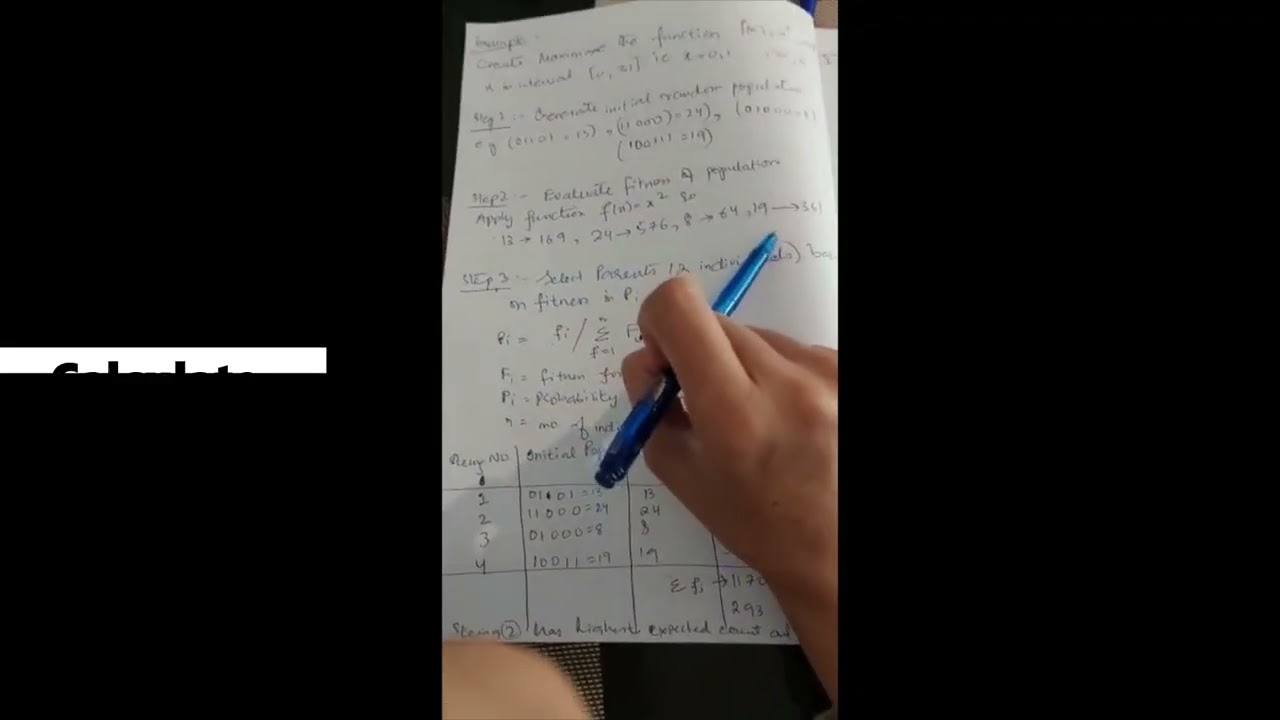 Example:-
Create Maximize the function
x in interval [0, 31] ie x=0,1
Step 1:- Generate initial random population
eg (01101 = 13), (11000) = 24), (01000=8)
(10011 = 19)
Step 2:- Evaluate fitness of population
Apply function f(x) = x² so
13 → 169, 24 → 576, 8 → 64, 19 → 361
Step 3:- Select Parents (2 individuals)
on fitness in Pi
Pi = fi / Σ n f=1 F
Fi = fitness for
Pi = Probability
n = no of indi
Calculate
String No Initial Po
1 01101=13 13
2 11000=24 24
3 01000=8 8
4 10011=19 19
Σ fi → 1170
293
String ② has highest expected count